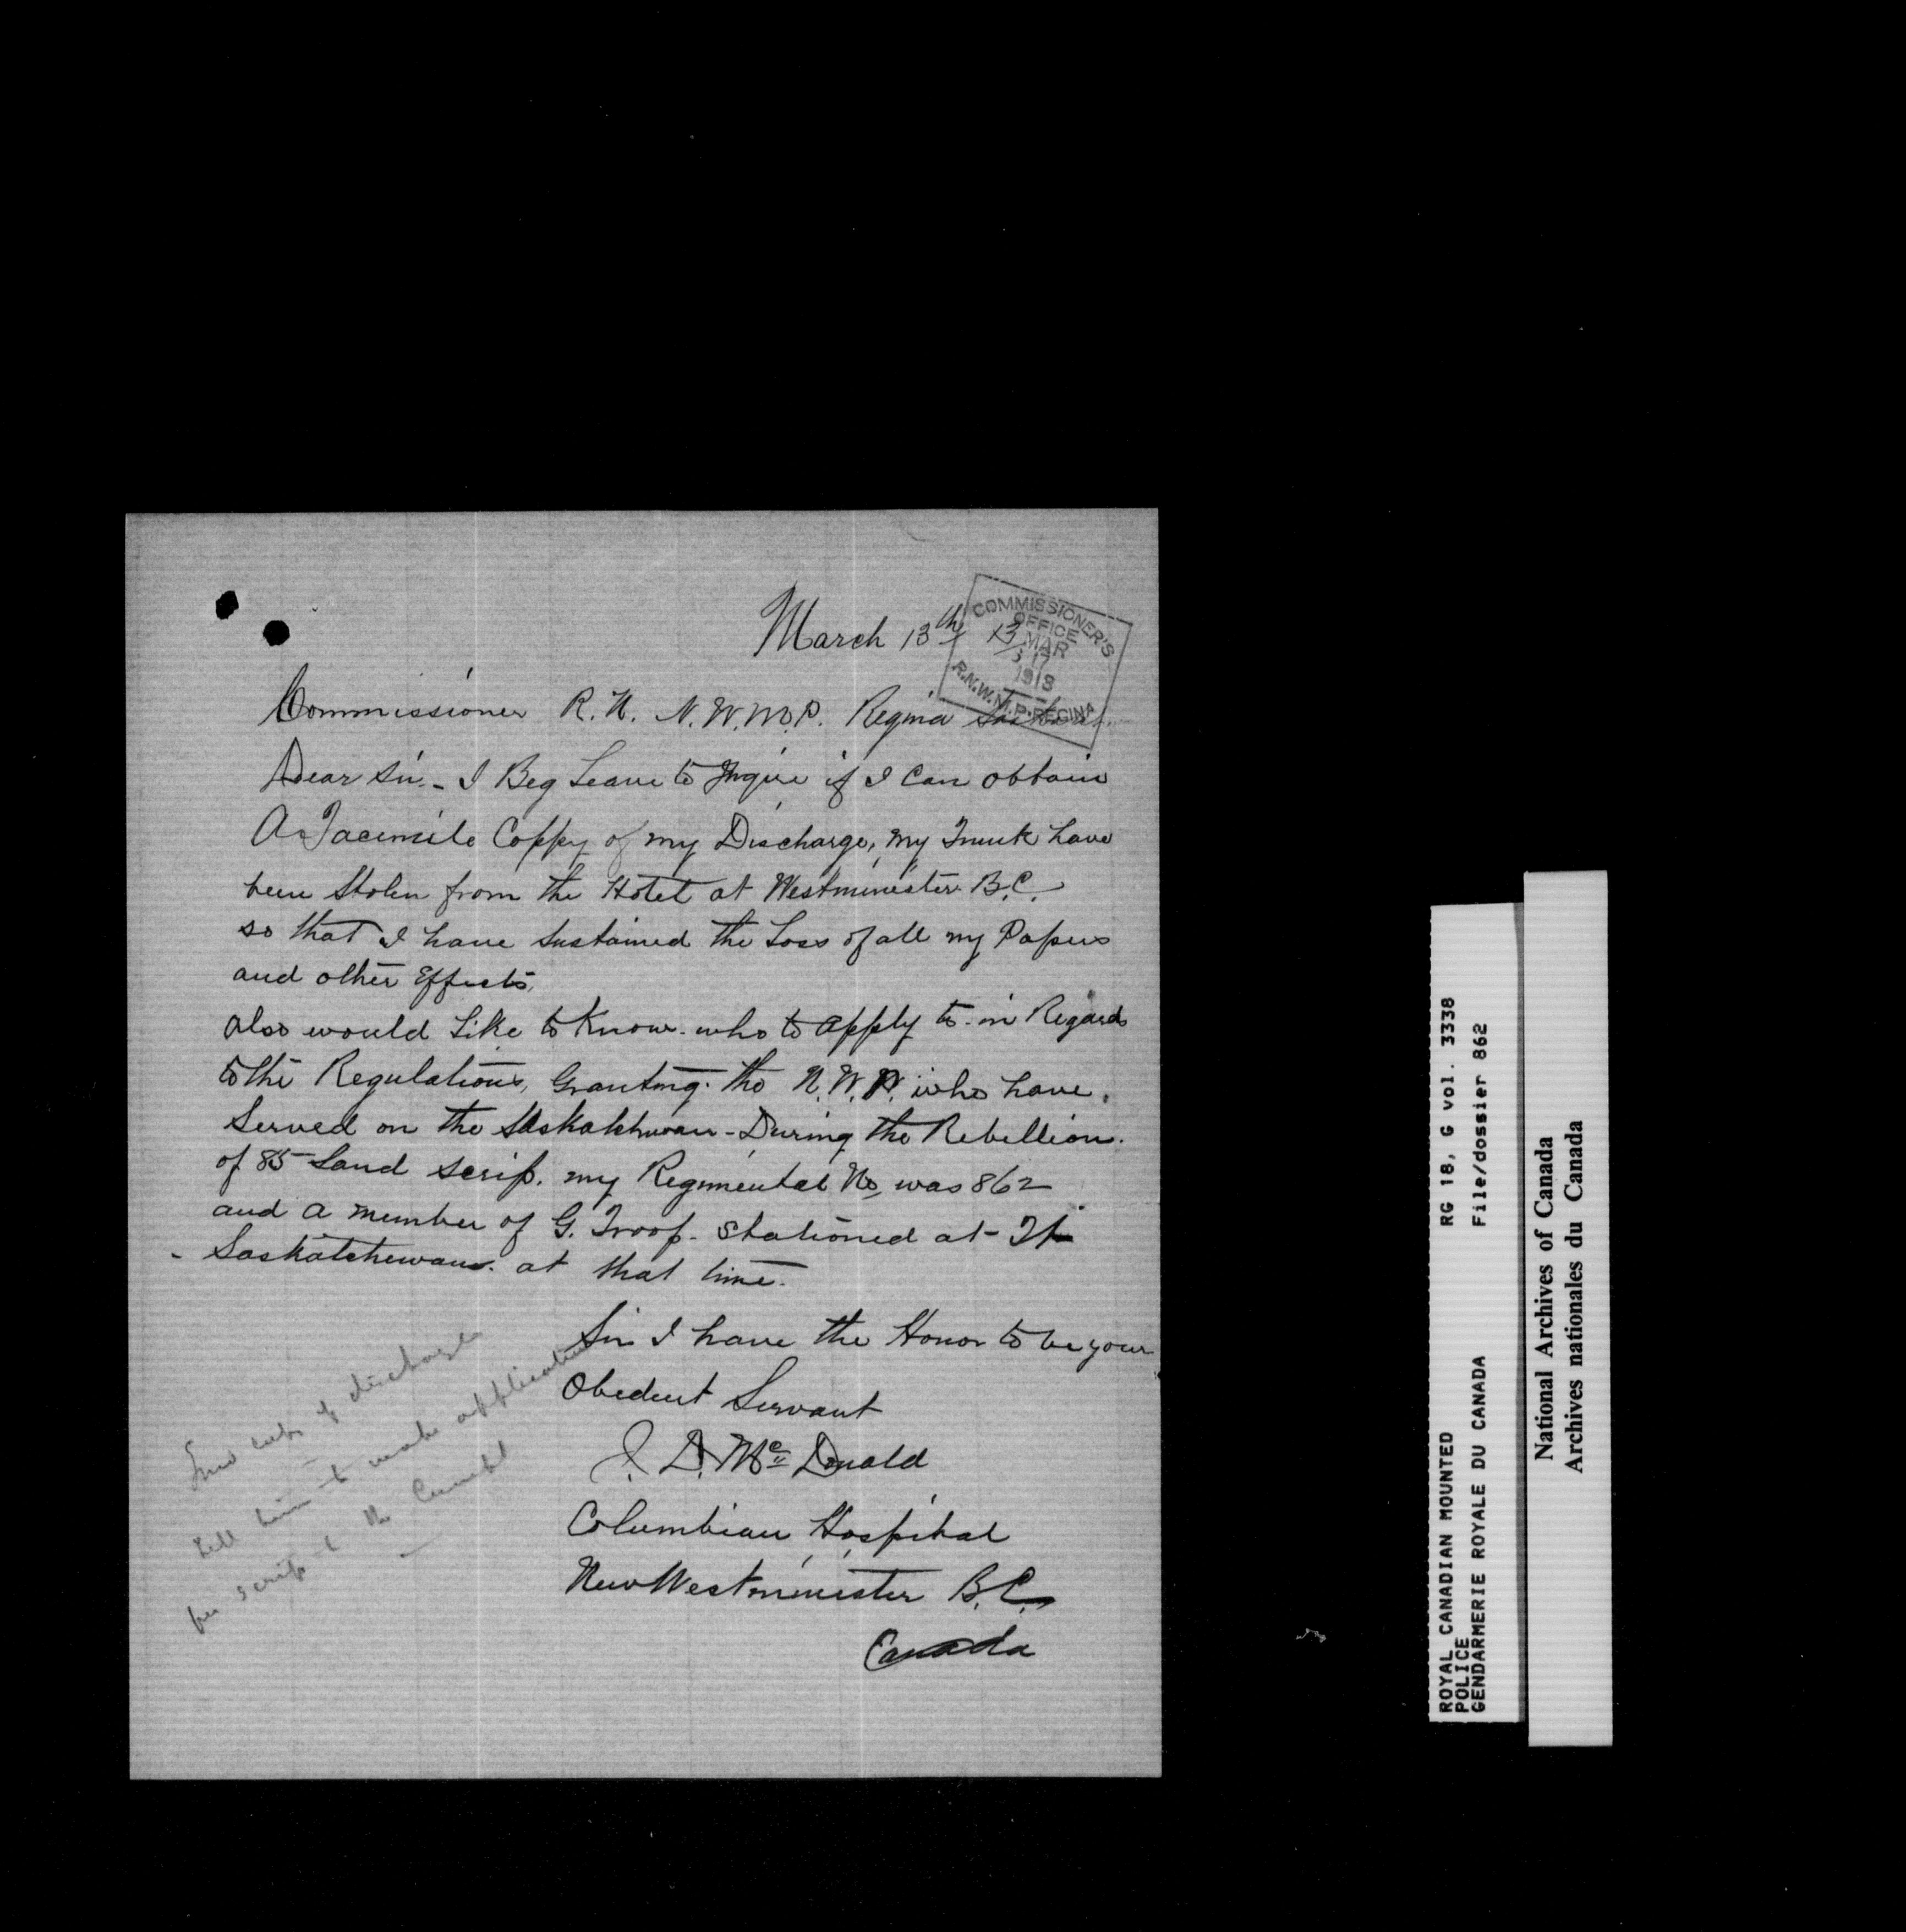 March 13th 13
COMMISSIONER'S
OFFICE
MAR
17
1913
R.N.W.M.P. REGINA
Commissioner R. N. N.W.M.P. Regina
Dear Sir. - I Beg Leave to Inqire if I Can obtain
A Facimile Coppy of my Discharge, my Trunk have
been Stolen from the Hotel at Westminister B.C.
so that I have Sustained the Loss of all my Papers
and other Effects,
also would Like to Know. who to apply to. in Regards
to the Regulations, Granting. the N.W.P. who have
Served on the Saskatchwan - During the Rebellion.
of 85 Land Scrip. my Regimental No, was 862
and a member of G. Troop. Stationed at
Saskatchewan. at that time.
Sir I have the Honor to be your
Obedient Servant
J. D. Mc Donald
Columbian Hospital
New Westminister B.C.
Canada
Send copy of discharge
tell him to make application
for scrip to the Compt
ROYAL CANADIAN MOUNTED RG 18, G vol. 3338
POLICE File/dossier 862
GENDARMERIE ROYALE DU CANADA
National Archives of Canada
Archives nationales du Canada